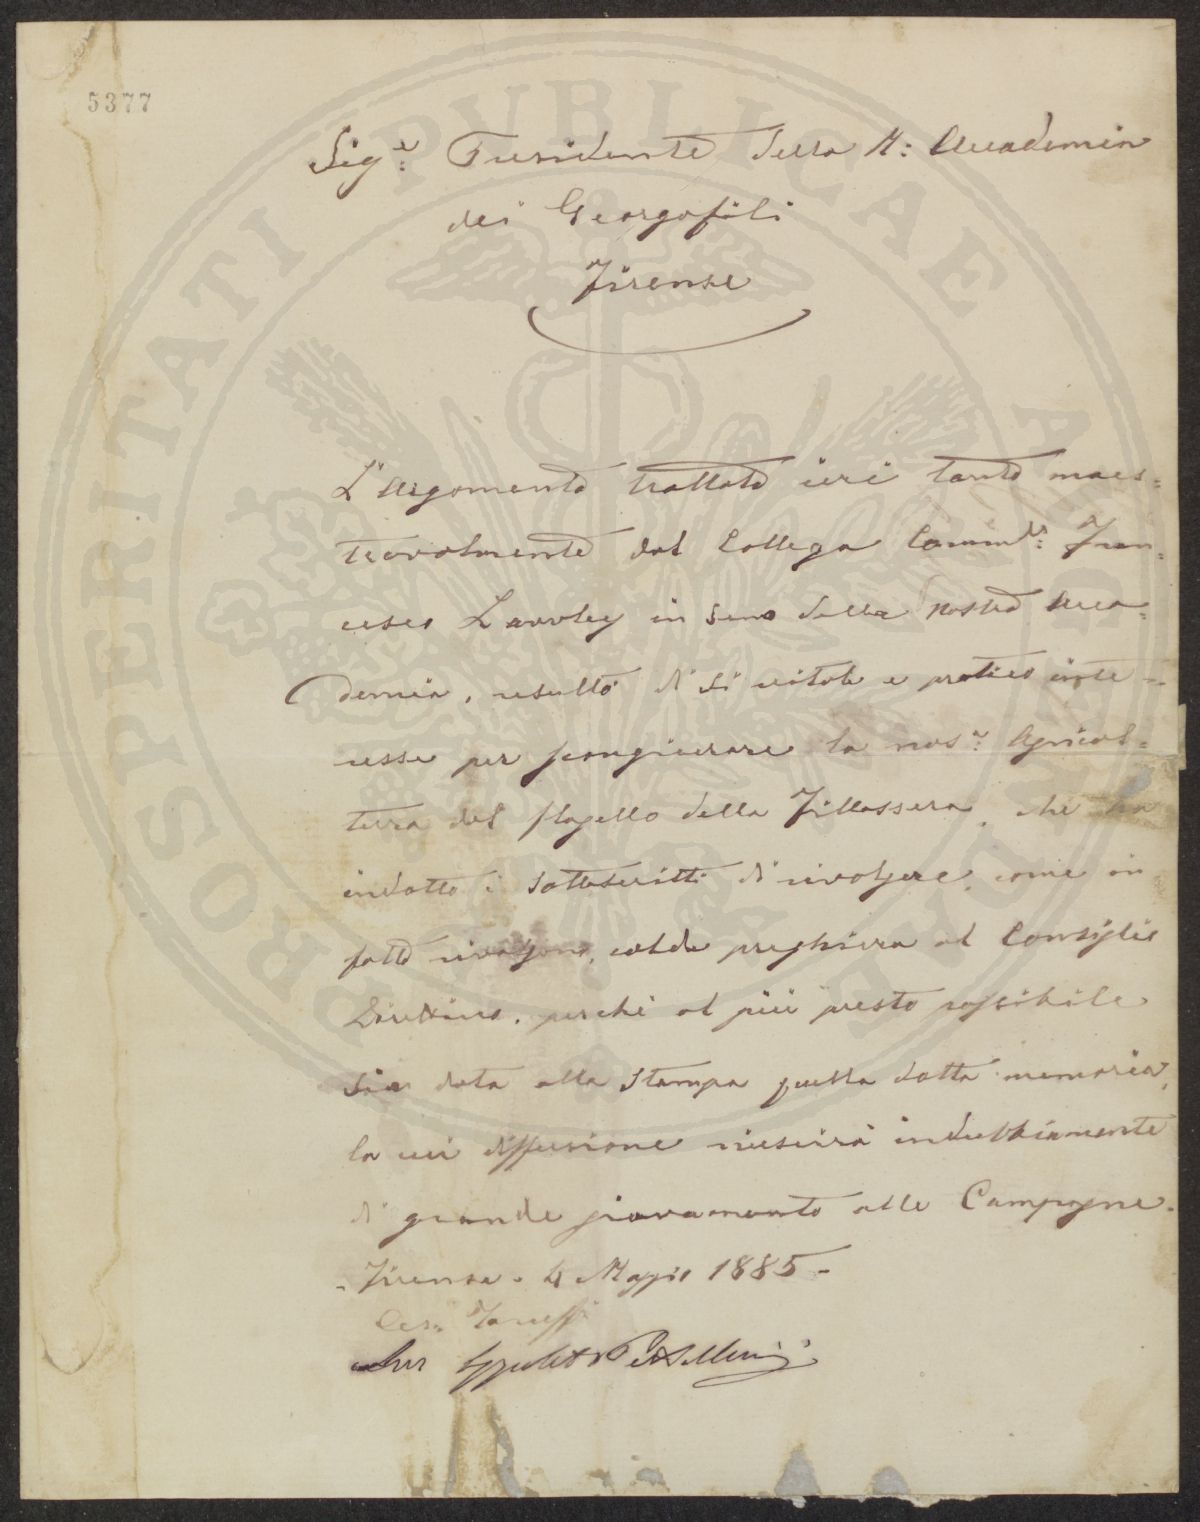 5377
PROSPERITATI PVBLICAE AVGENDAE
Sig.e Presidente della R: Accademia
dei Georgofili
Firenze
L'Argomento trattato ieri tanto maes=
trevolmente dal Collega Comm.re: Fran=
cesco Lawley in seno della nostra Acca=
demia, resultò di sì vitale e pratico inte=
resse per scongiurare la nos.a: Agricol=
tura dal flagello della Fillossera, che ha
indotto i sottoscritti di rivolgere, come in
fatto rivolgono, calda preghiera al Consiglio
Direttivo, perchè al più presto possibile
sia data alla Stampa quella dotta memoria,
la cui diffusione riuscirà indubbiamente
di grande giovamento alle Campagne.
- Firenze. 4 Maggio 1885 -
Ippolito Pestellini